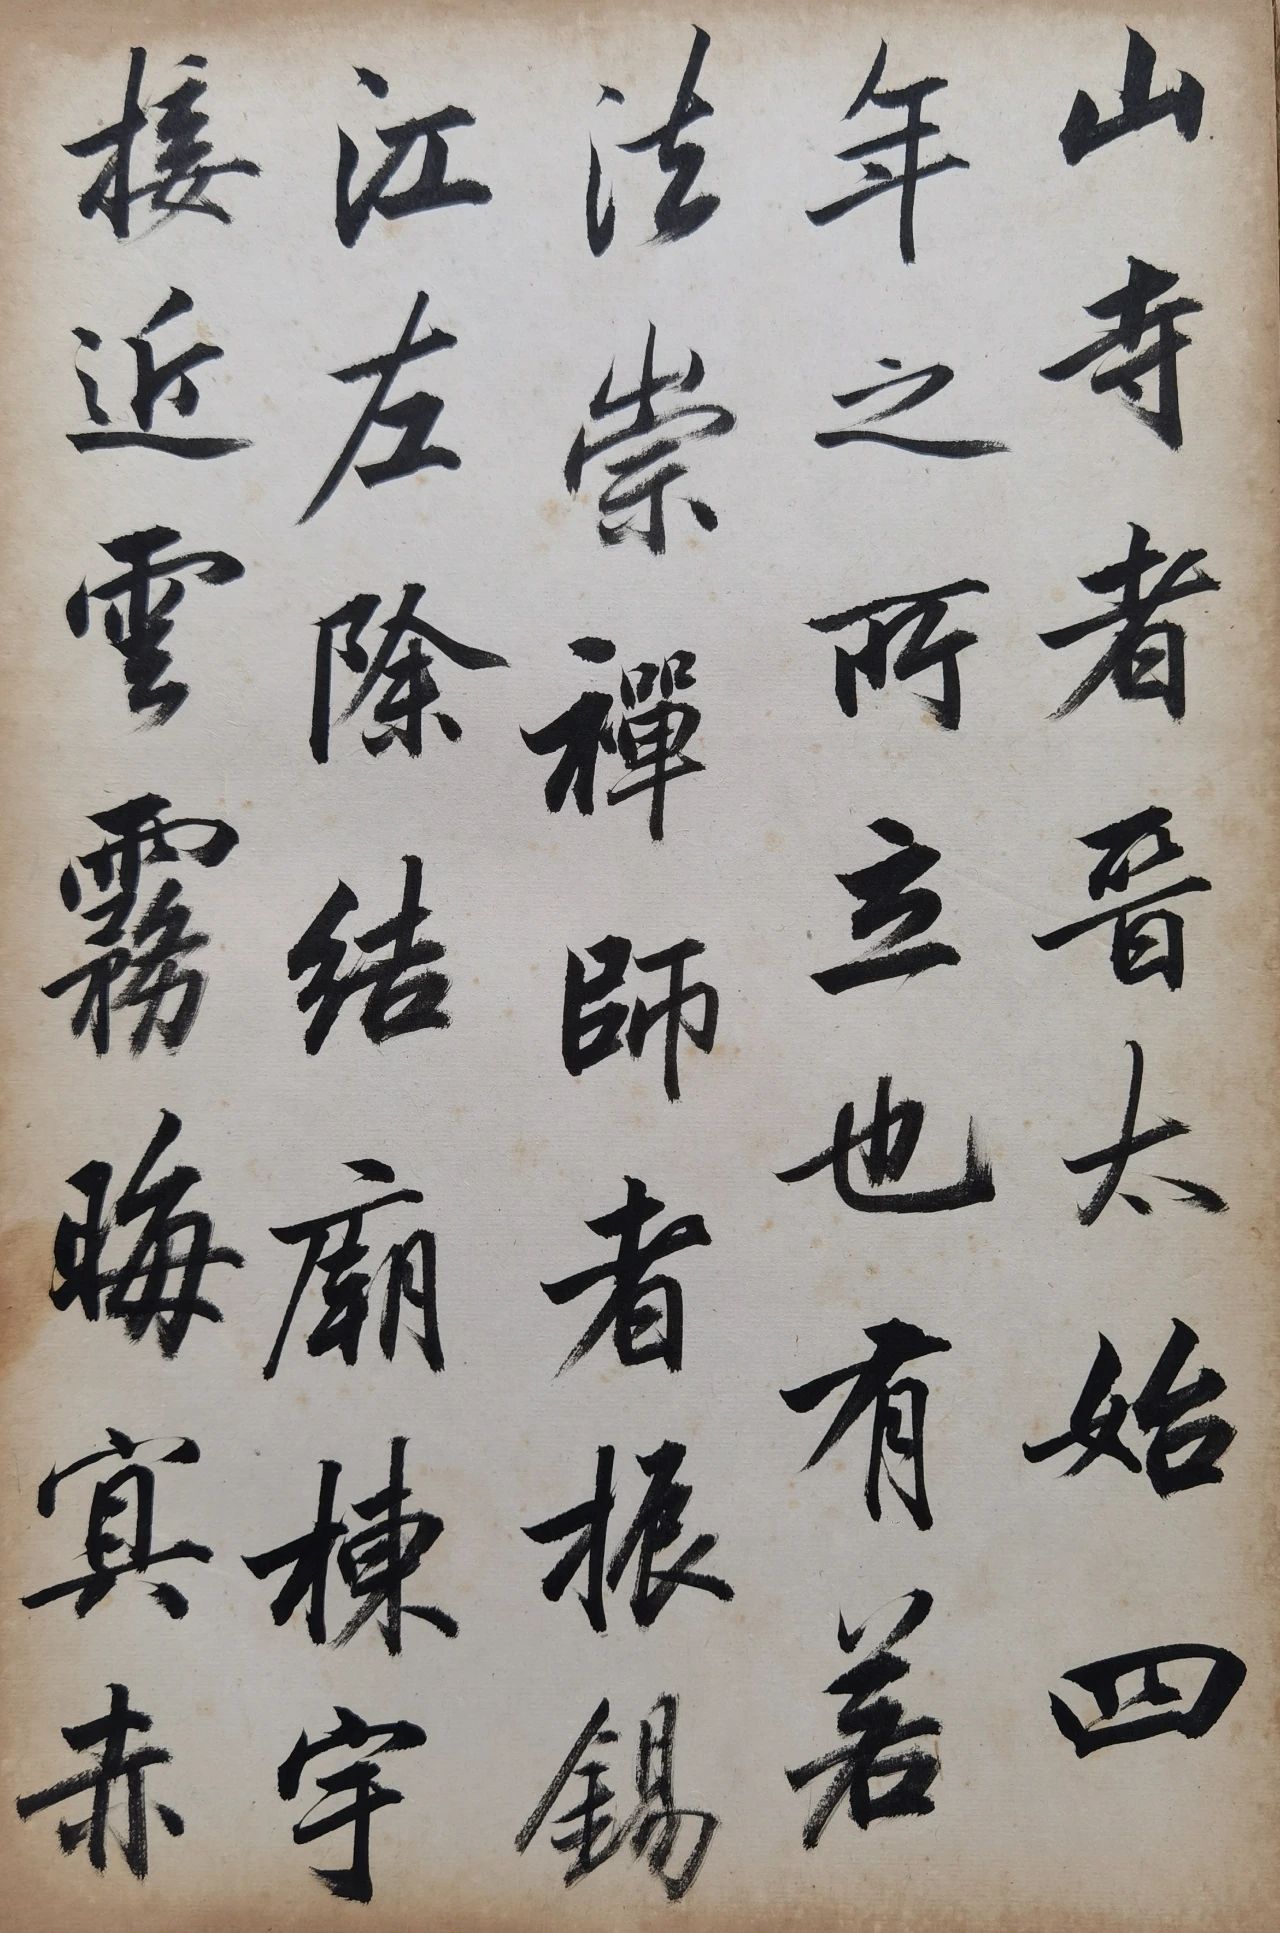 山寺者晋太始四
年之所立也有若
法崇禪師者振錫
江左除結廟棟宇
接近雲霧晦寘赤